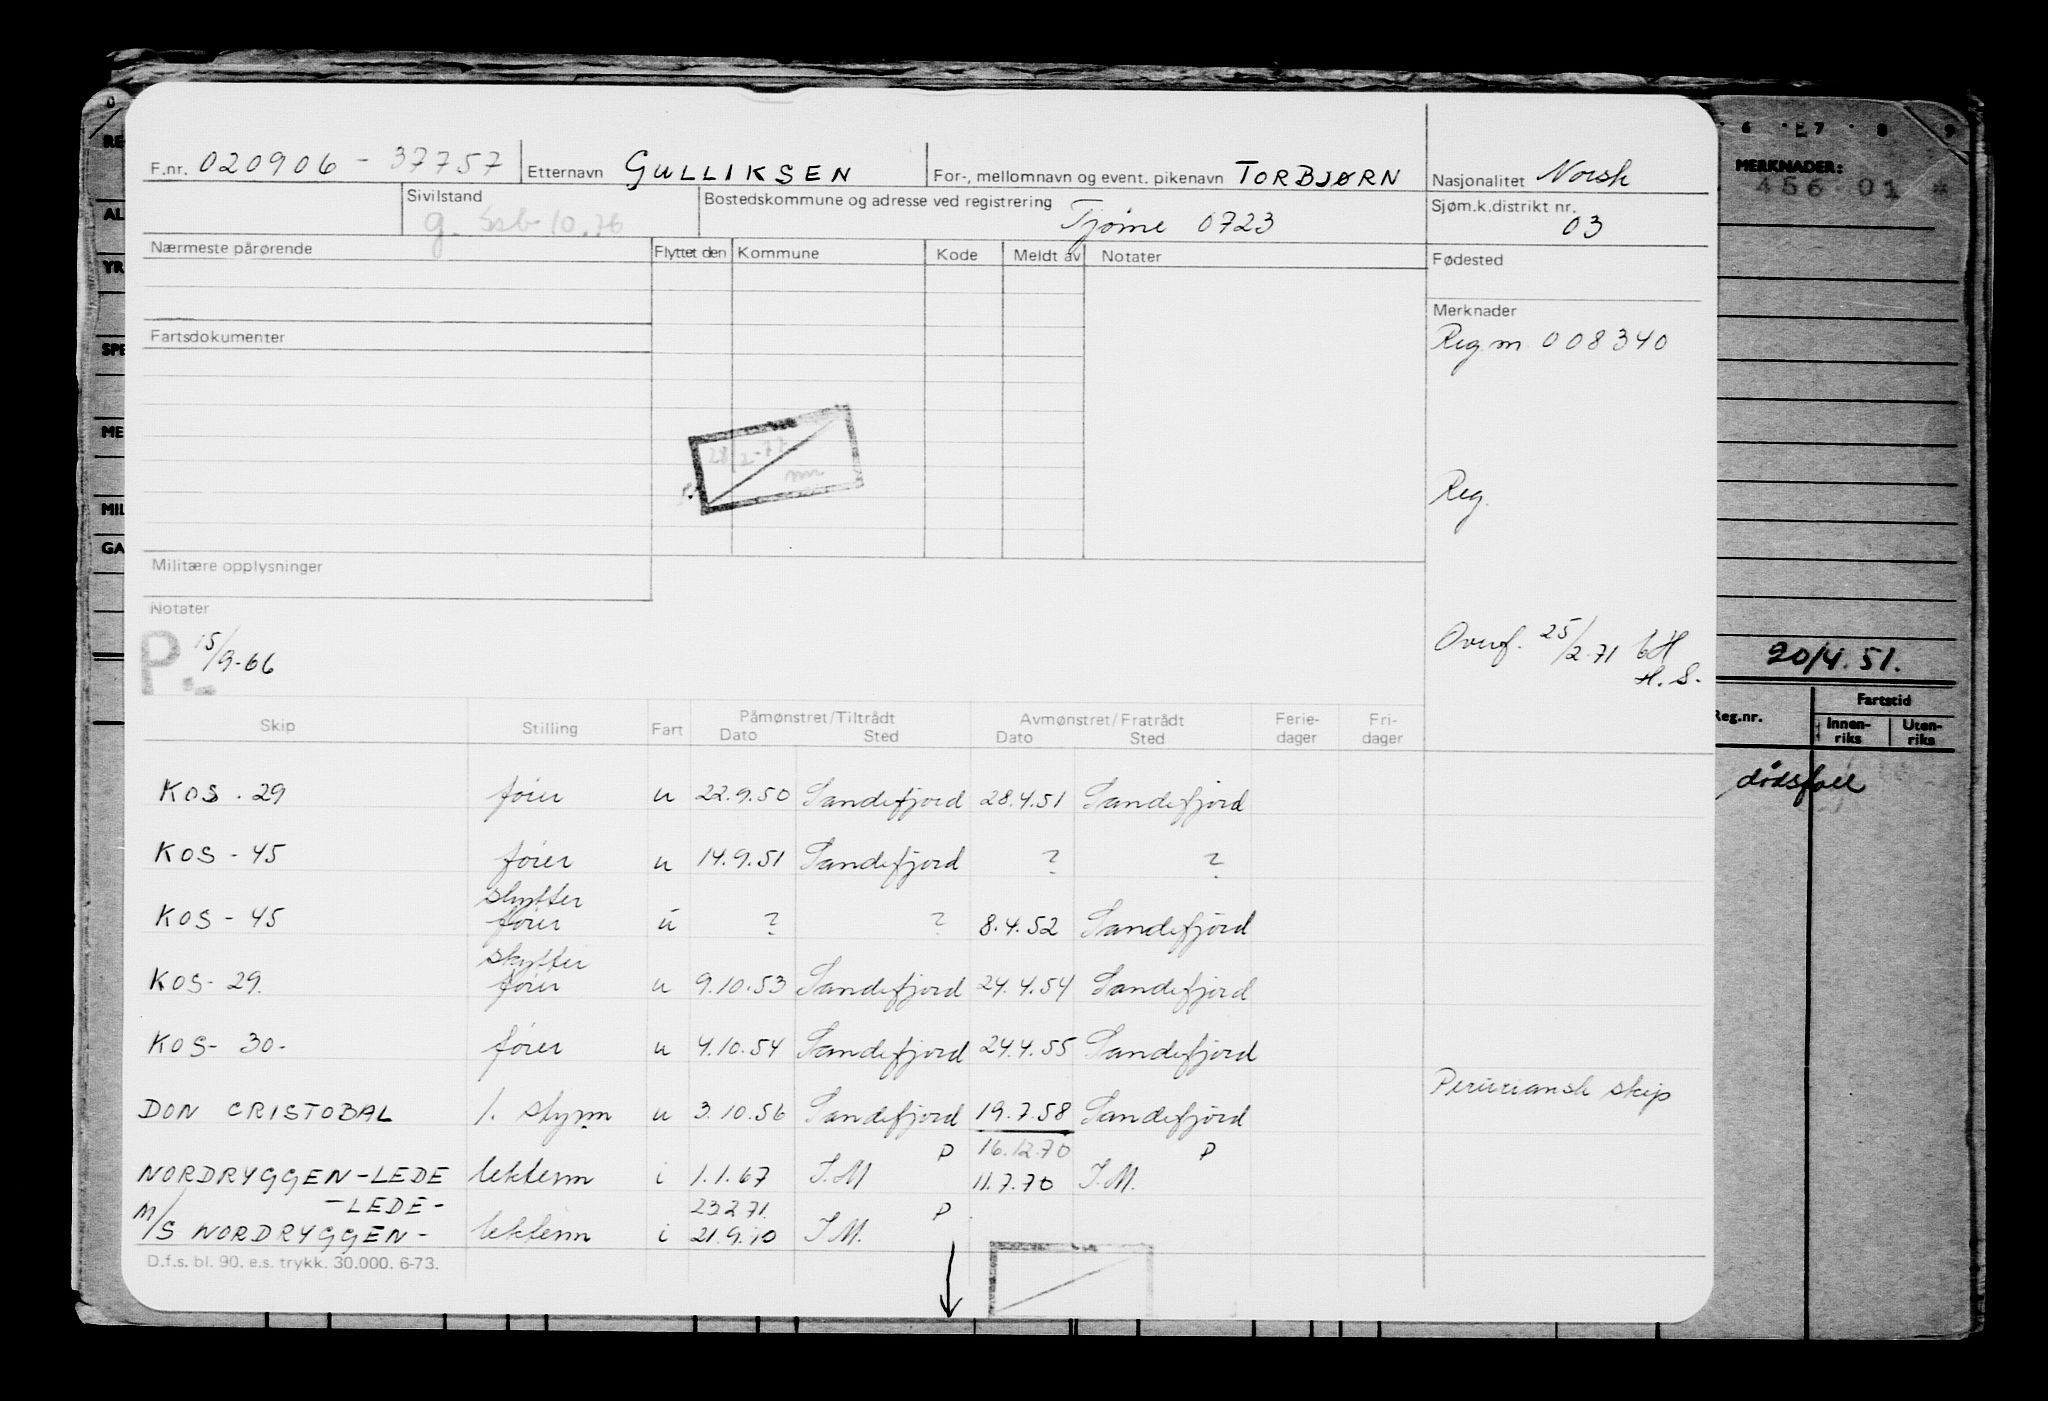 F.nr. 020906 - 37757 Etternavn GULLIKSEN For-, mellomnavn og event. pikenavn TORBJØRN Nasjonalitet Norsk
Sivilstand g. Bostedskommune og adresse ved registrering Tjøme 0723 Sjøm.k.distrikt nr. 03
Nærmeste pårørende Flyttet den Kommune Kode Meldt av Notater Fødested
Merknader
Fartsdokumenter Reg nr. 008340
28/2-77
Reg.
Militære opplysninger
Notater
P. 15/9-66 Overf. 25/2-71
H.S.
Skip Stilling Fart Påmønstret/Tiltrådt Avmønstret/Fratrådt Ferie- Fri-
Dato Sted Dato Sted dager dager
KOS - 29 fører u 22.9.50 Sandefjord 28.4.51 Sandefjord
KOS - 45 fører u 14.9.51 Sandefjord ? ?
skytter
KOS - 45 fører u ? ? 8.4.52 Sandefjord
skytter
KOS - 29. fører u 9.10.53 Sandefjord 24.4.54 Sandefjord
KOS - 30 - fører u 4.10.54 Sandefjord 24.4.55 Sandefjord
Peruviansk skip
DON CRISTOBAL 1. styrm u 3.10.56 Sandefjord 19.7.58 Sandefjord
P 16.12.70 P
NORDRYGGEN-LEDE lekterm i 1.1.67 I.M 11.7.70 I.M.
-LEDE- 23271. P
M/S NORDRYGGEN - lekterm i 21.9.70 I.M.
D.f.s. bl. 90. e.s. trykk. 30.000. 6-73.
6 7 8 9
MERKNADER:
456 01 *
20/4.51.
Reg.nr. Fartstid
Innen-riks Uten-riks
dødsfall
RE
AL
YR
SPE
ME
MIL
GA